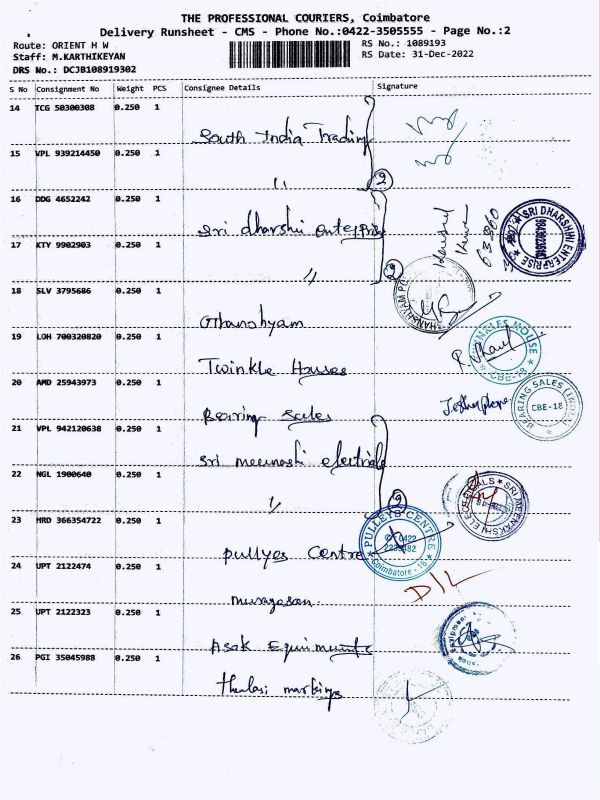 THE PROFESSIONAL COURIERS, Coimbatore
Delivery Runsheet - CMS - Phone No.:0422-3505555 - Page No.:2
Route: ORIENT H W
RS No.: 1089193
Staff: M.KARTHIKEYAN
RS Date: 31-Dec-2022
DRS No.: DCJB108919302
S No Consignment No Weight PCS Consignee Details Signature
14 TCG 50300308 0.250 1
South India Trading
15 VPL 939214450 0.250 1
〃
2
16 DDG 4652242 0.250 1
Sri dharshi enterprise
SRI DHARSHNI ENTERPRISE
17 KTY 9902903 0.250 1
〃
2
18 SLV 3795686 0.250 1
Ghanshyam
19 LOH 700320820 0.250 1
Twinkle House
TWINKLES MOUSE
CBE-18
20 AMD 25943973 0.250 1
Bearing Sales
BEARING SALES
CBE-18
21 VPL 942120638 0.250 1
Sri meenashi electrials
22 NGL 1900640 0.250 1
〃
2
SRI MEENAKSHI ELECTRICALS
23 HRD 366354722 0.250 1
pullyes Centre
PULLEYS CENTRE
0422
Coimbatore - 18
24 UPT 2122474 0.250 1
murugesan.
D/L
25 UPT 2122323 0.250 1
Asok Equipments
26 PGI 35045988 0.250 1
thulasi markings